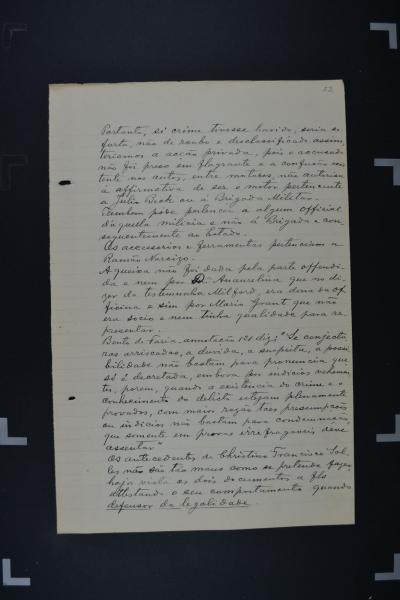 52
Portanto, si crime tivesse havido, seria o
furto, não de roubo e desclassificado assim
teriamos a acção privada, pois o accusado
não foi preso em flagrante e a confusão exis
tente nos autos, entre motores, não autorisa
a affirmativa de ser o motor pertencente
a Julio Beck ou a Brigada Militar.
Tambem pode pertencer a algum official
daquella milicia e não á Brigada e con-
sequentemente ao Estado.
Os accessorios e ferramentas pertenciam a
Ramão Narcizo.
A queixa não foi dada pela parte offendi-
da e nem por D. Anaurelina que no di-
zer da testemunha Milford, era dona da of-
ficina e sim por Mario Grant que não
era socio e nem tinha qualidade para re-
presentar.
Bento de Faria, annotação 121 diz: "Se conjectu
ras arriscadas, a duvida, a suspeita, a possi
bilidade não bastam para pronuncia que
só é decretada, embora por indicios vehemen
tes, porem, quando a existencia do crime e o
conhecimento do delicto estejam plenamente
provados, com maior razão taes presumpções
ou indicios não bastam para condemnação
que somente em provas irrefragaveis, deve
assentar".
Os antecedentes de Christino Francisco Sol-
les não são tão maus como se pretende fazer,
haja vista os dois documentos a fls
attestando o seu comportamento quando
defensor da legalidade.